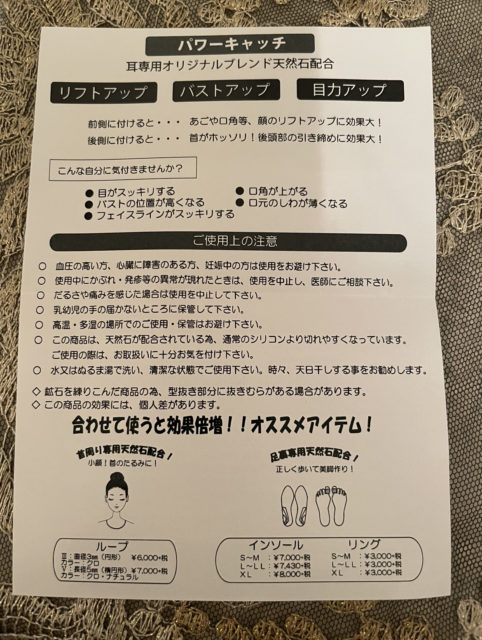 パワーキャッチ
耳専用オリジナルブレンド天然石配合
リフトアップ バストアップ 目力アップ
前側に付けると・・・ あごや口角等、顔のリフトアップに効果大!
後側に付けると・・・ 首がホッソリ!後頭部の引き締めに効果大!
こんな自分に気付きませんか?
● 目がスッキリする ● 口角が上がる
● バストの位置が高くなる ● 口元のしわが薄くなる
● フェイスラインがスッキリする
ご使用上の注意
○ 血圧の高い方、心臓に障害のある方、妊娠中の方は使用をお避け下さい。
○ 使用中にかぶれ・発疹等の異常が現れたときは、使用を中止し、医師にご相談下さい。
○ だるさや痛みを感じた場合は使用を中止して下さい。
○ 乳幼児の手の届かないところに保管して下さい。
○ 高温・多湿の場所でのご使用・保管はお避け下さい。
○ この商品は、天然石が配合されている為、通常のシリコンより切れやすくなっています。
ご使用の際は、お取扱いに十分お気を付け下さい。
○ 水又はぬるま湯で洗い、清潔な状態でご使用下さい。時々、天日干しする事をお勧めします。
◇ 鉱石を練りこんだ商品の為、型抜き部分に抜きむらがある場合があります。
◇ この商品の効果には、個人差があります。
合わせて使うと効果倍増!!オススメアイテム!
首周り専用天然石配合!
小顔!首のたるみに!
足裏専用天然石配合!
正しく歩いて美脚作り!
ループ
Ⅲ:直径3㎜(円形) ¥6,000+税
カラー:クロ
Ⅴ:長径5㎜(楕円形) ¥7,000+税
カラー:クロ・ナチュラル
インソール
S~M :¥7,000+税
L~LL:¥7,430+税
XL :¥8,000+税
リング
S~M :¥3,000+税
L~LL:¥3,000+税
XL :¥3,000+税